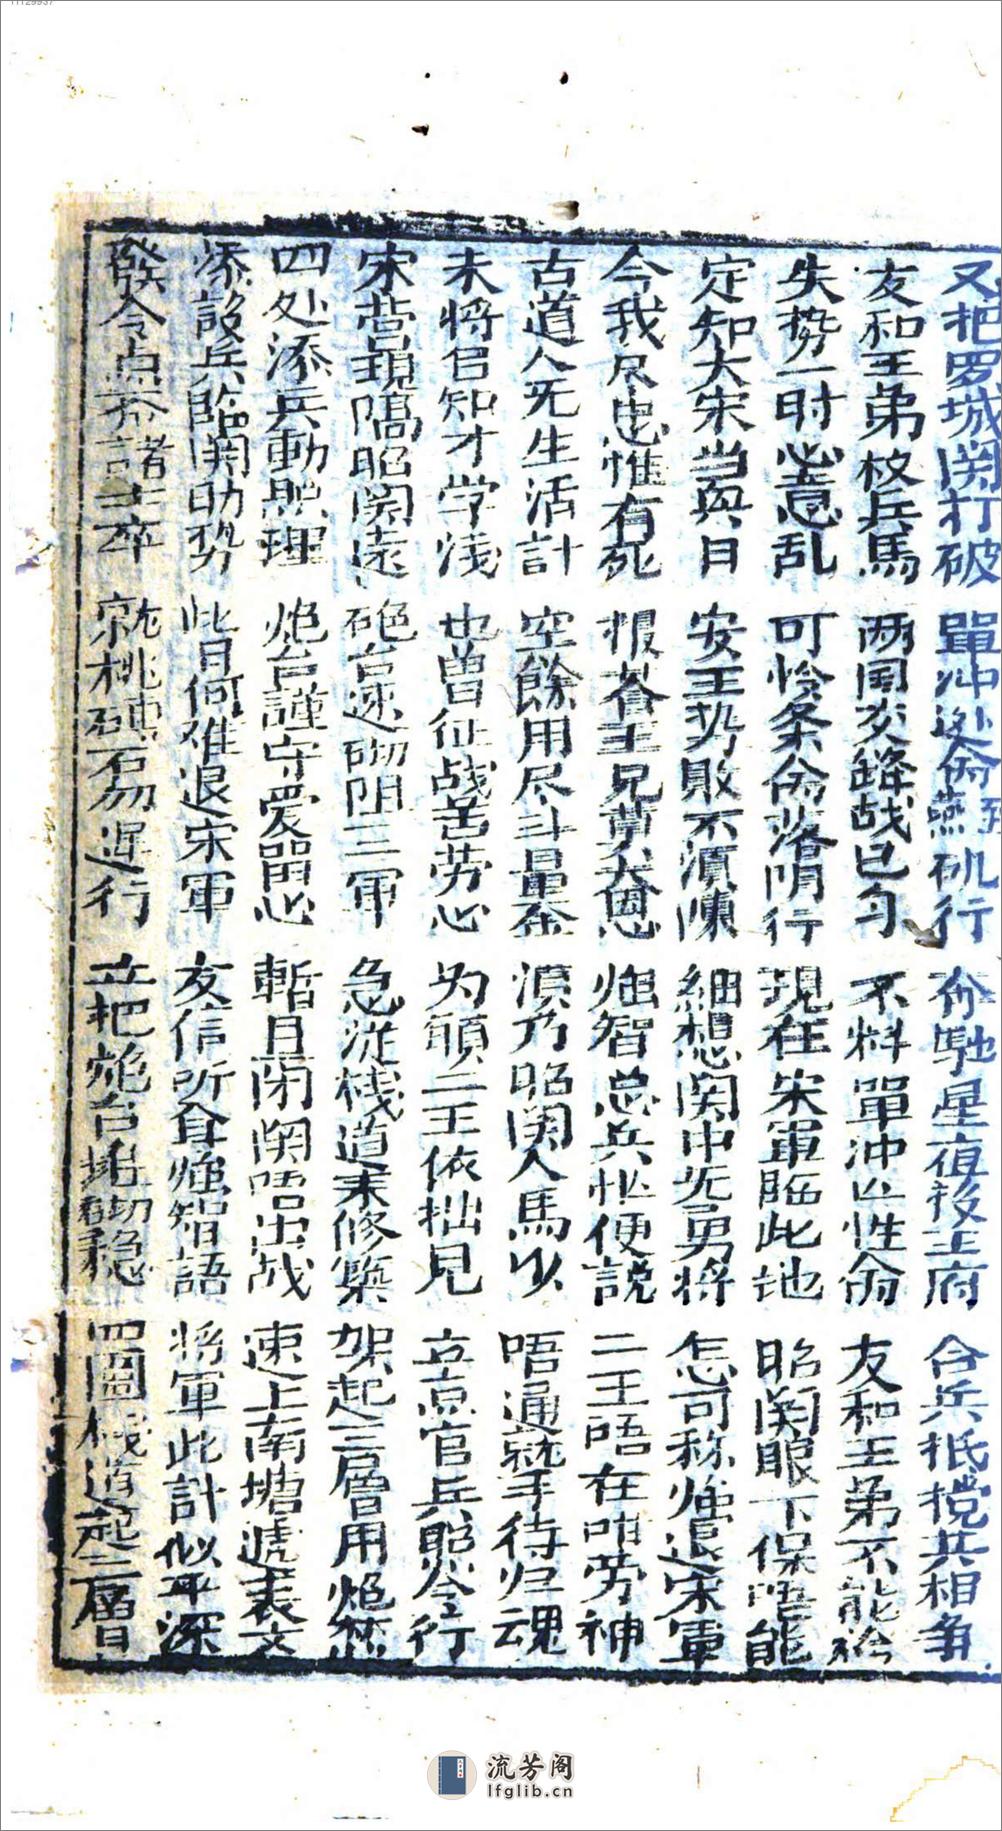 11129937
又把罗城関打破 單冲逃命燕矶行 奔馳星夜投王府 合兵抵擋共相争
友和王弟枚兵馬 两国交鋒战已匀 不料單冲亾性命 友和王弟不能於
失势一时心意乱 可怜条命落阴行 现在宋軍臨此地 昭関眼下保唔能
定知大宋当兴日 安王势敗不須陳 細想関中无勇将 怎可称強退宋軍
今我尽忠惟有死 报荅王兄莫大恩 烟智总兵忙便說 二王唔在咁劳神
古道人无生活計 空餘用尽斗量金 須乃昭関人馬少 唔通就手待归魂
末将自知才学浅 也曽征战苦劳心 为頭二王依拙見 立点官兵照令行
宋营現隔昭関遠 砲台速砌阻三軍 急従栈道来修築 架起三層用炮
四处添兵動照理 炮台謹守爱留心 暫且闭関唔出战 速上南塘遞表文
添設兵臨関助势 此日何难退宋軍 友信听聞強智語 将軍此計似平深
發令点齐諸士卒 就挑 石 運行 立把炮台 砌稳 四圍栈道起三層
流芳阁
lfglib.cn